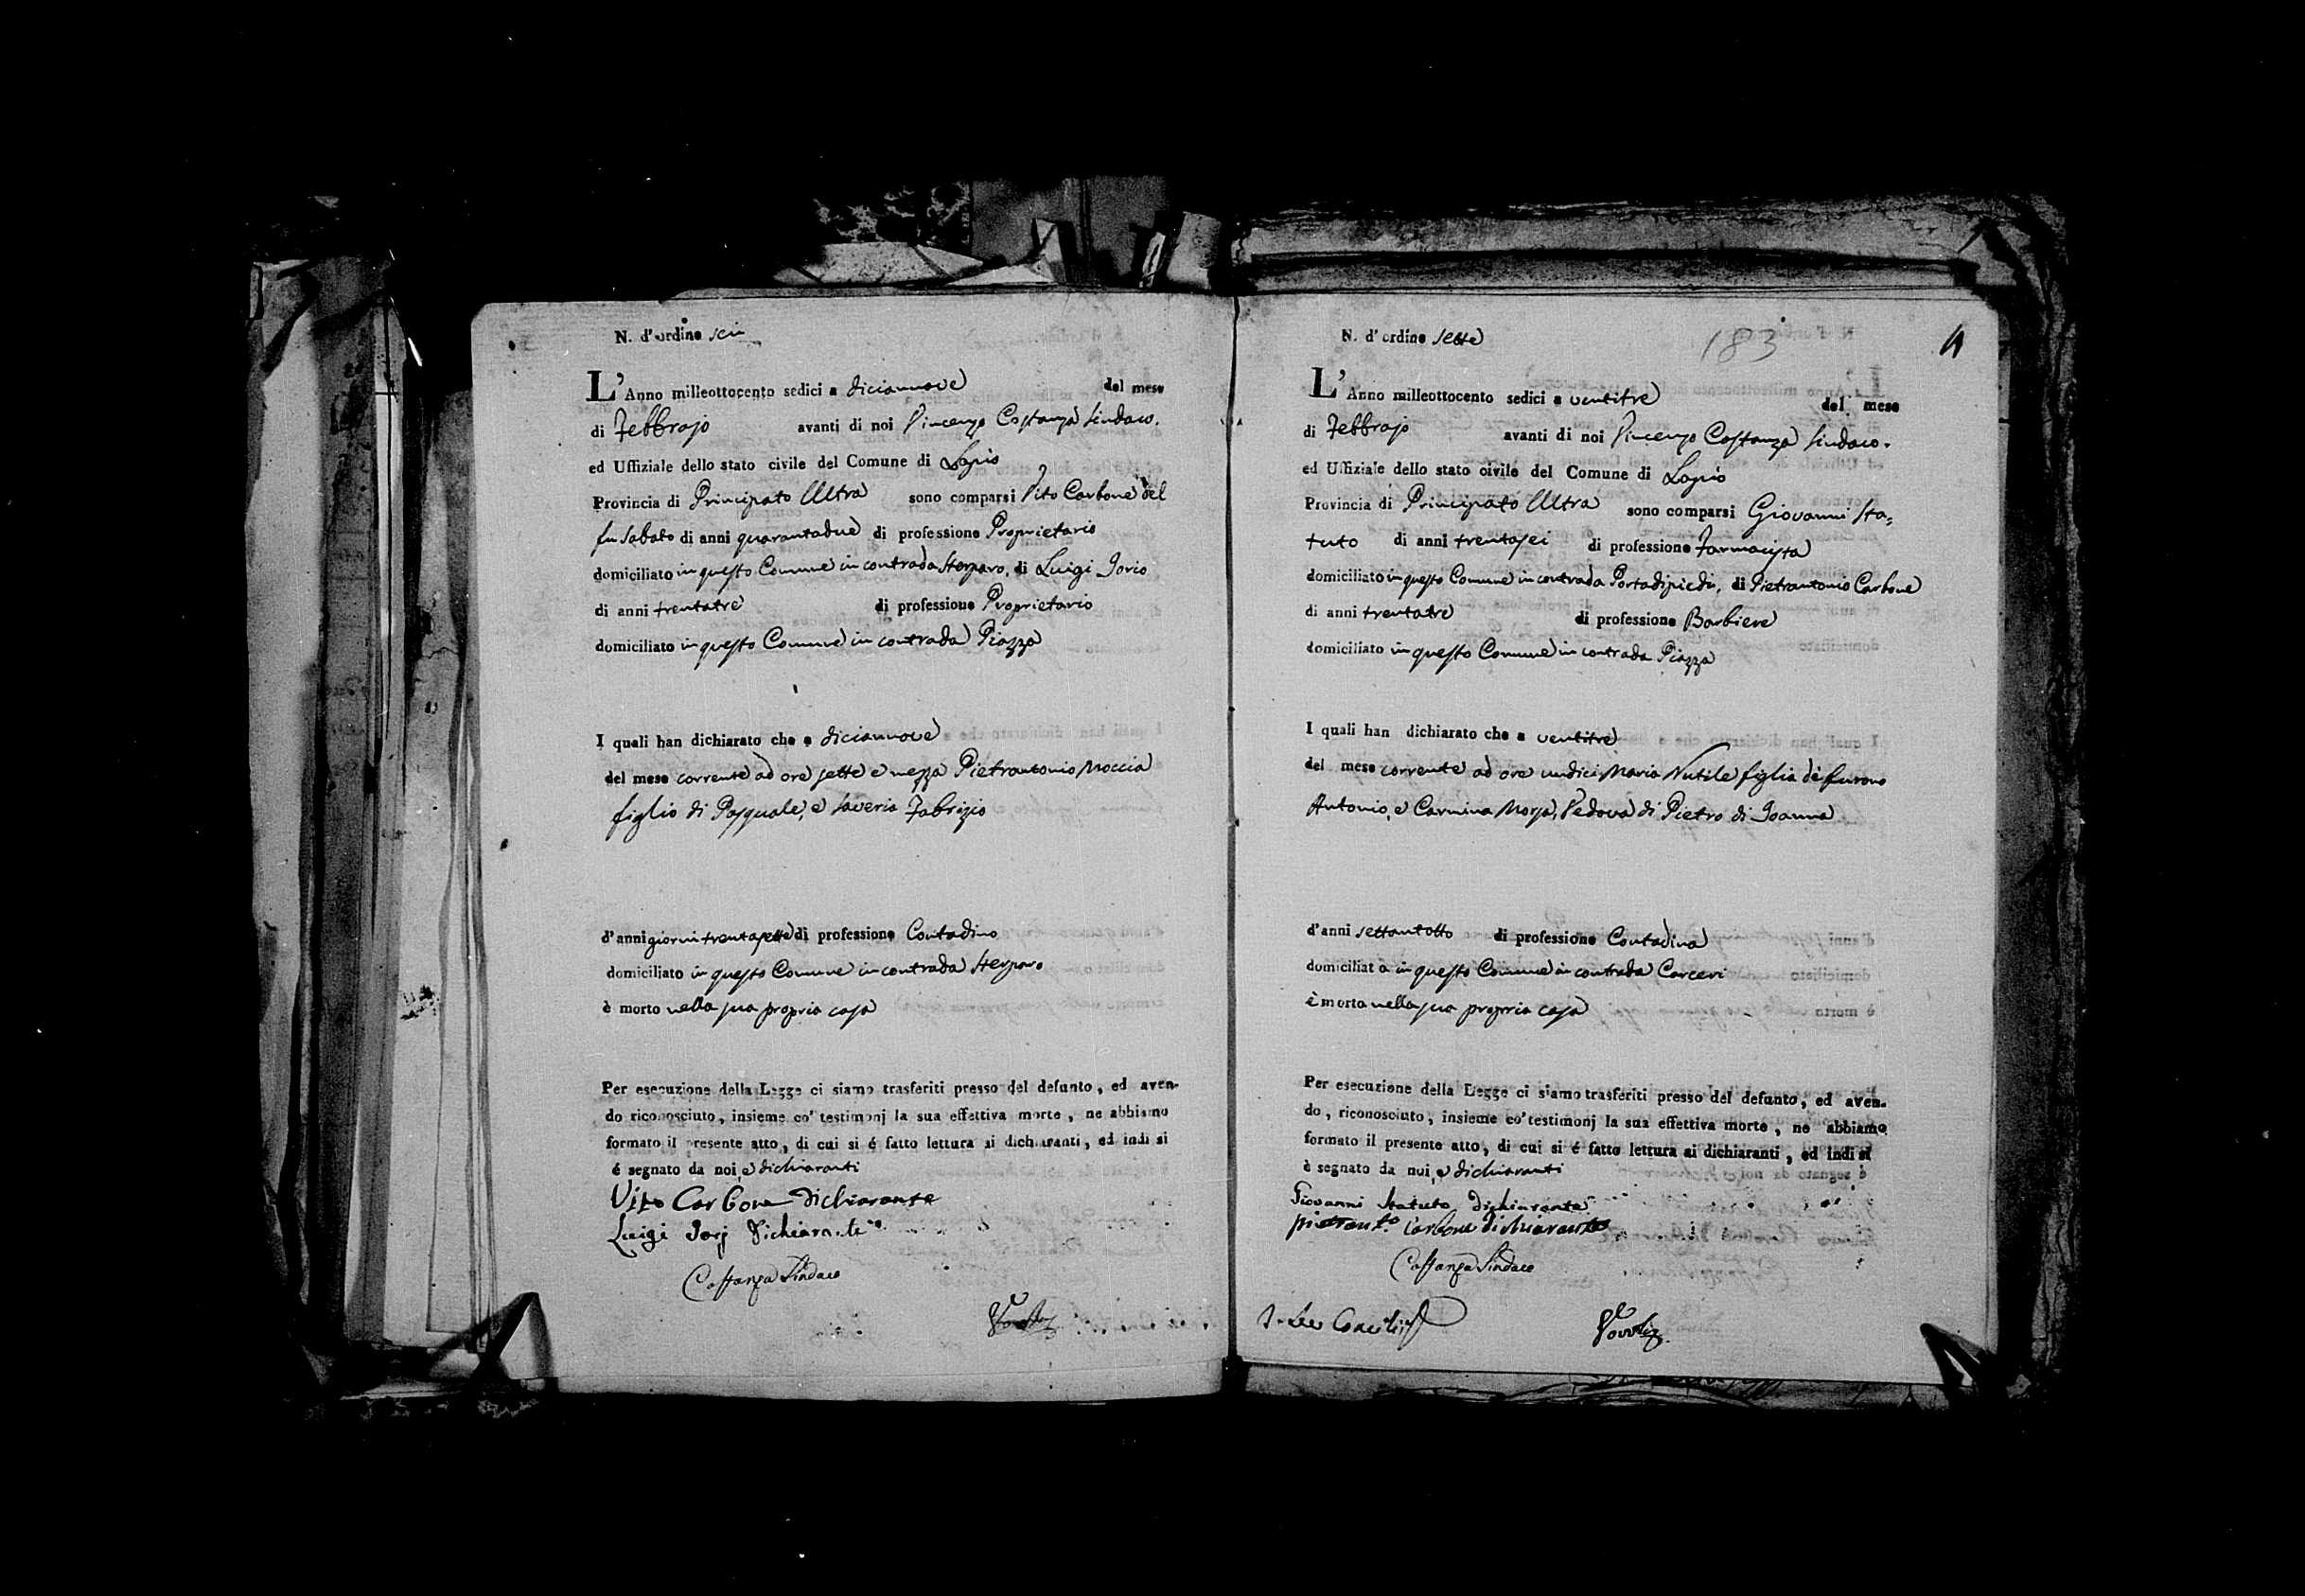 N. d'ordine sei
L'Anno milleottocento sedici a diciannove del mese
di Febbrajo avanti di noi Vincenzo Costanza Sindaco.
ed Uffiziale dello stato civile del Comune di Lapio
Provincia di Principato Ultra sono comparsi Vito Carbone del
fu Sabato di anni quarantadue di professione Proprietario
domiciliato in questo Comune in contrada Sterparo, di Luigi Jorio
di anni trentatre di professione Proprietario
domiciliato in questo Comune in contrada Piazza
I quali han dichiarato che a diciannove
del mese corrente ad ore sette e mezza Pietrantonio Moccia
figlio di Pasquale, e Saveria Fabrizio
d'anni giorni trentasette di professione Contadino
domiciliato in questo Comune in contrada Sterparo
è morto nella sua propria casa
Per esecuzione della Legge ci siamo trasferiti presso del defunto, ed aven-
do riconosciuto, insieme co' testimonj la sua effettiva morte, ne abbiamo
formato il presente atto, di cui si é fatto lettura ai dichiaranti, ed indi si
é segnato da noi, e dichiaranti
Vito Carbone Dichiarante
Luigi Jorj Dichiarante
Costanza Sindaco
N. d'ordine sette
183
4
L'Anno milleottocento sedici a ventitre del mese
di Febbrajo avanti di noi Vincenzo Costanza Sindaco.
ed Uffiziale dello stato civile del Comune di Lapio
Provincia di Principato Ultra sono comparsi Giovanni Sta=
tuto di anni trentasei di professione Farmacista
domiciliato in questo Comune in contrada Portadipiedi, di Pietrantonio Carbone
di anni trentatre di professione Barbiere
domiciliato in questo Comune in contrada Piazza
I quali han dichiarato che a ventitre
del mese corrente ad ore undici Maria Nutile figlia de' furono
Antonio, e Carmina Morsa, Vedova di Pietro di Joanna
d'anni settantotto di professione Contadina
domiciliata in questo Comune in contrada Carceri
è morta nella sua propria casa
Per esecuzione della Legge ci siamo trasferiti presso del defunto, ed aven-
do, riconosciuto, insieme co' testimonj la sua effettiva morte, ne abbiamo
formato il presente atto, di cui si é fatto lettura ai dichiaranti, ed indi si
è segnato da noi, e dichiaranti
Giovanni Statuto Dichiarante
pietrant.o Carbone dichiarante
Costanza Sindaco